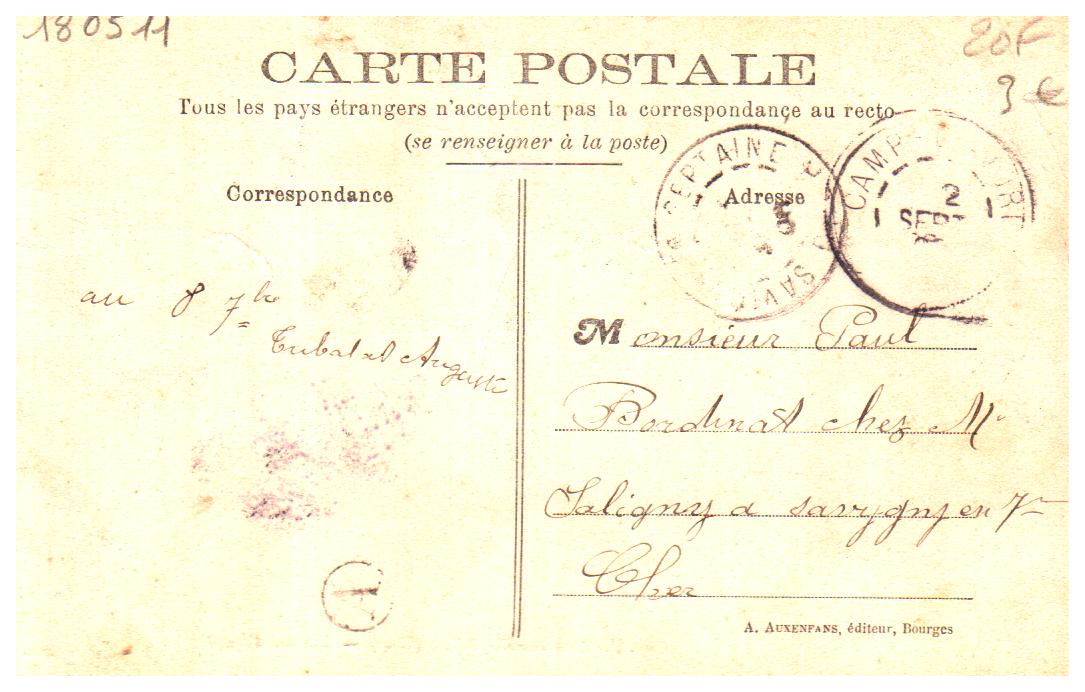 180511
20F
3 €
CARTE POSTALE
Tous les pays étrangers n'acceptent pas la correspondance au recto
(se renseigner à la poste)
Correspondance
Adresse
SEPTAINE
SAVI
CAMP
2
SEPT
au 8 7bre
Tubalat Auguste
Monsieur Paul
Bordinat chez Mr
Saligny a savygny en 7ne
Cher
A
A. AUXENFANS, éditeur, Bourges